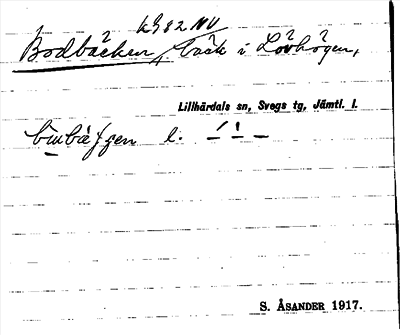 kg 82 NV
Bodbäcken, bäck i Lövhögen,
Lillhärdals sn, Svegs tg, Jämtl. l.
l.
S. ÅSANDER 1917.